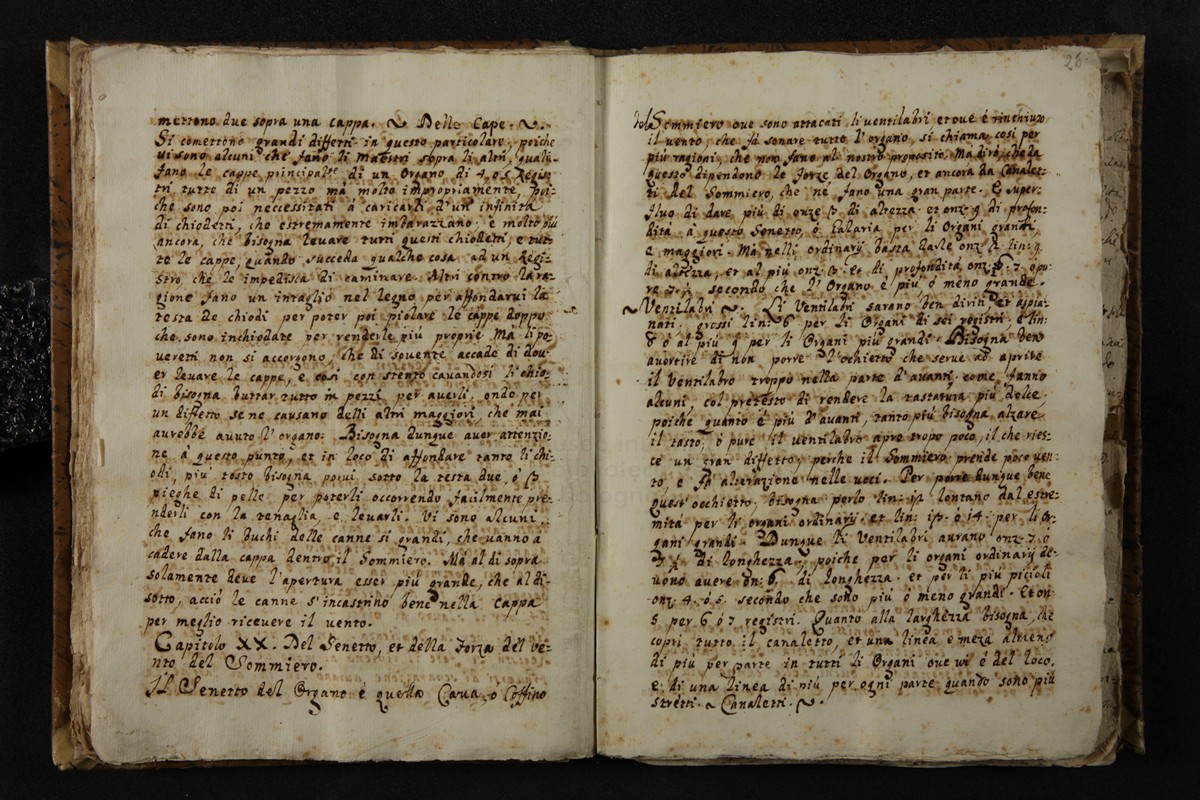 mettono due sopra una cappa. Delle Cape.
Si comettono grandi diffetti in questo particolare, poiche
vi sono alcuni che fano li Maestri sopra li altri, quali
fano le cappe principal.te di un Organo di 4, o 5 Regis-
tri tutte di un pezzo má molto impropriamente, Poi-
che sono poi neccessitati á caricarli d'un' infinitá
di chiodetti, che estremamente imbarazzano, e molto più
ancora, che bisogna levare tutti questi chiodetti, e tut-
te le cappe, quando succeda qualche cosa ad un Regi-
stro, che le impedisca di caminare. Altri contro la ra-
gione fano un intaglio nel legno per affondarvi la
testa de chiodi per poter poi piolare le cappe doppo
che sono inchiodate per renderle piú proprie. Ma li po-
veretti non si accorgono, che di sovente accade di dov-
er levare le cappe, e cosi con stento cavandosi li chio-
di bisogna buttar tutto in pezzi per averli, onde per
un diffetto se ne causano delli altri maggiori, che mai
avrebbe avuto l'organo. Bisogna dunque aver attenzio-
ne á questo punto, et in loco di affondare tanto li chi-
odi, piu tosto bisogna porvi sotto la testa due, ó 3
pieghe di pelle per poterli occorrendo facilmente pre-
nderli con la tenaglia, e levarli. Vi sono alcuni
che fano li buchi delle canne si grandi, che vanno á
cadere dalla cappa dentro il Sommiero. Má al di sopra
solamente deve l'apertura esser piú grande, che al di-
sotto, acció le canne s'incastrino bene nella cappa
per meglio ricevere il vento.
Capitolo XX. Del Senetto, et della Forza del ve-
nto del Sommiero.
Il Senetto del Organo é quella Cava, ó Coffino
28
del Sommiero ove sono attacati li ventilabri et ove é rinchiuso
il vento, che fá sonare tutto l'organo, si chiama cosi per
piú ragioni, che non fano al nostro proposito. Ma dirò, che da
questo dipendono le forze del Organo, et ancora da Canalet-
ti del Sommiero, che né fano una gran parte. É super-
fluo di dare piú di onze 3 di altezza et onz. 9 di profon-
ditá á questo Senetto, ó Lalaria per li Organi grandi,
e maggiori. Má nelli ordinarij basta darle onz. 2 lin. 9.
di altezza, et al piú onz. 3. et di profonditá onz. 6. 7 opu-
re 7 ½ secondo che l'Organo é piú ó meno grande.
Ventilabri. Li Ventilabri sarano ben diriti et appia-
nati, grossi lin. 6 per li Organi di sei registri, é lin:
8 ó al piú 9 per li Organi piú grandi. Bisogna ben
avertire di non porre l'ochietto che serve ad aprire
il ventilabro troppo nella parte d'avanti come fanno
alcuni, col pretesto di rendere la tastatura piú dolce,
poiche quanto é piú d'avanti, tanto piú bisogna alzare
il tasto, ó pure il ventilabro apre tropo poco, il che ries-
ce un gran diffetto, perche il Sommiero prende poco ven-
to, e fá alterazione nelle voci. Per porre dunque bene
quest' occhietto, bisogna porlo lin: 12 lontano dal estre-
mitá per li organi ordinarij et lin: 13. ó 14. per li Or-
gani grandi. Dunque li Ventilabri avrano onz. 7. ó
7 ½ di longhezza, poiche per li organi ordinarij de-
vono avere on: 6. di longhezza. et per li piú picioli
onz. 4. ó 5. secondo che sono piú ó meno grandi. Et on:
5 per 6 ó 7 registri. Quanto alla larghezza bisogna, che
copri tutto il canaletto, et una linea e meza almeno
di piú per parte in tutti li Organi ove vi é del loco,
e di una linea di piú per ogni parte quando sono piú
stretti. Canaletti.